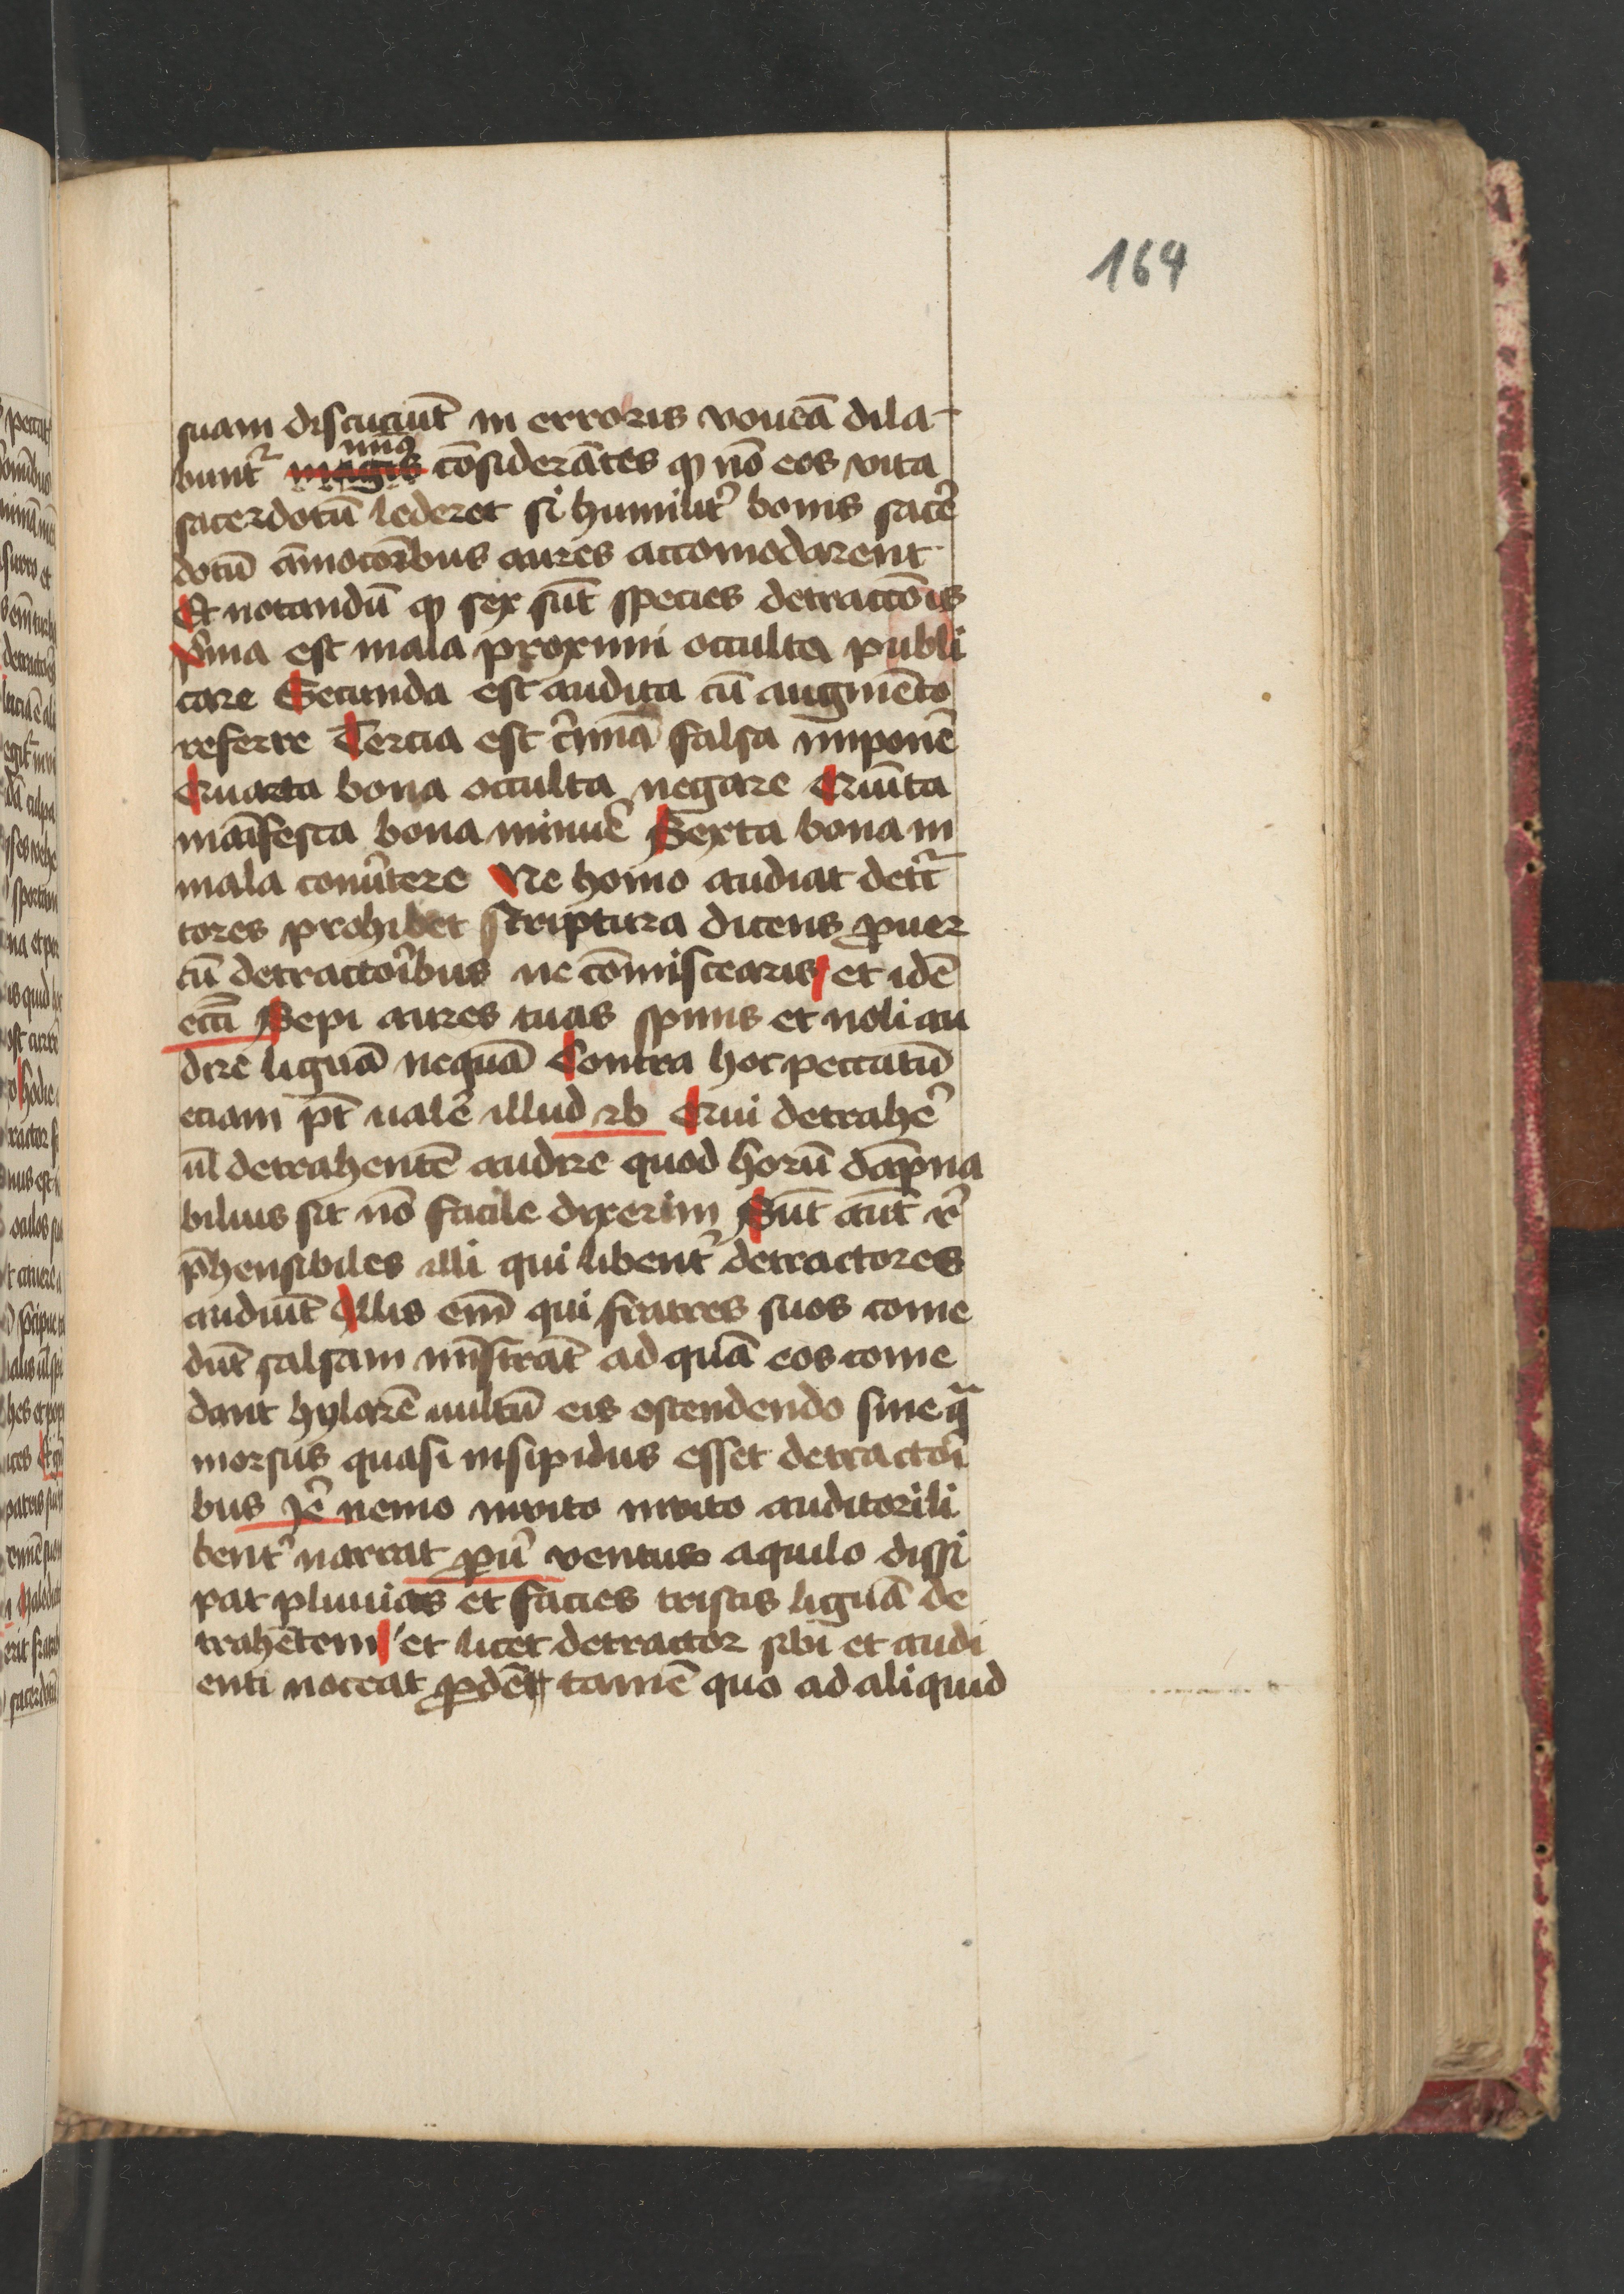 164
suam discuciūt in erroris voueā dila-
buntᷣ magis minꝰ cōsiderātes ꝙ nō eos vita
sacerdotū lederet si humilitᷣ bonis sacer̄
dotū āmocōibus aures accomodarent
Et notandū ꝙ sex sūt species detraccōis
p̄ma est mala proximi occulta publi
care Secunda est audita cū augmēto
referre Tercia est cᷣminā falsa inponē
Quarta bona occulta negare Quīta
maīfesta bona minuē Sexta bona in
mala conuᷣtere Ne homo audiat detᷓc
tores prohibet scriptura dicens ꝓuer
cū detractoībus ne cōmiscearis et idē
ecci̅ Sepi aures tuas spinis et noli au
dire liguā nequā Contra hoc peccatū
eciam pt̄ ualē illud rb Qui detrahē
ul̄ detrahentē audire quod horū dāpna
bilius sit nō facile dixerim Sūt aūt rᷣ
p̄hensibiles illi qui libentᷣ detractores
audiūt Illis em̄ qui fratres suos come
dūt salsam mīstrāt ad quā eos come
dant hylarē uultū eis ostendendo sine qᷓ
morsus quasi insipidus esset detractoī
bus Ie᷃ nemo inuito inuito auditori li
bentᷣ narrat ꝓuᷣ ventus aquilo dissi
pat pluuias et facies tristis liguā de
trahētem et licet detractor sibi et audi
enti noceat ꝓdēt tamē quo ad aliquid